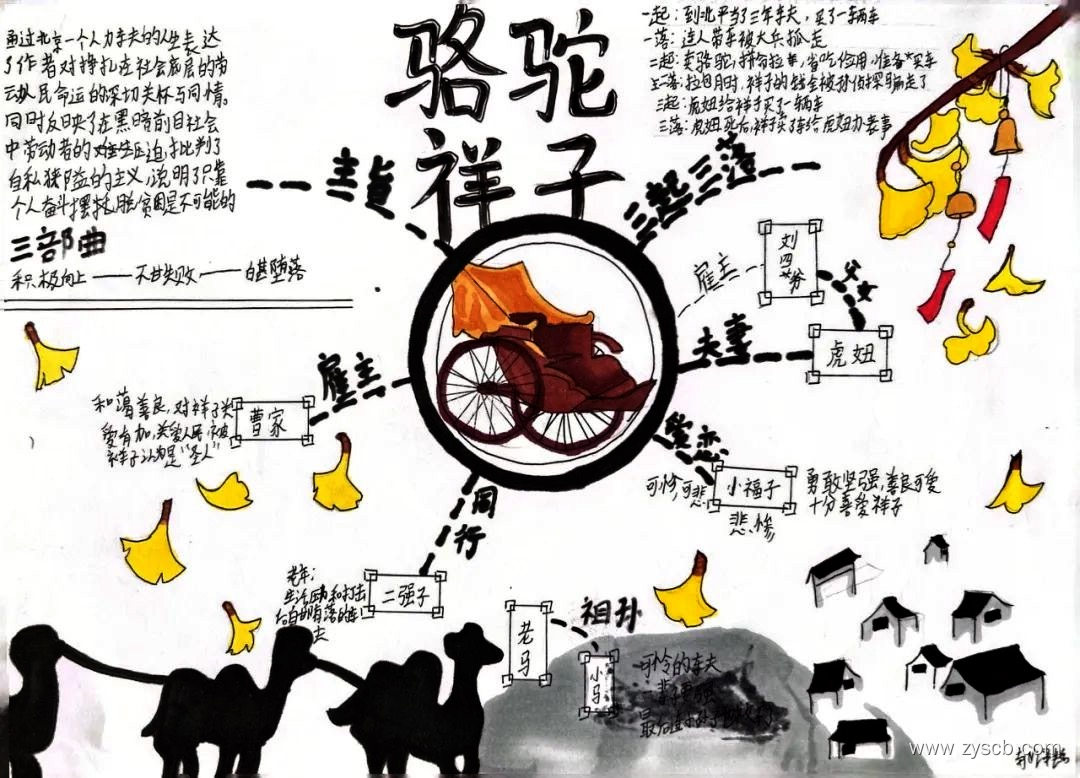 骆驼
祥子
通过北京一个人力车夫的人生表达
了作者对挣扎在社会底层的劳
动人民命运的深切关怀与同情。
同时反映了在黑暗的旧社会
中劳动者的难
批判了
自私狭隘的主义,说明了只靠
个人奋斗摆脱贫困是不可能的
三部曲
积极向上——不甘失败——自甘堕落
主旨
三起三落
一起:到北平当了三年车夫,买了一辆车
一落:连人带车被大兵抓走
二起:卖骆驼,拼命拉车,省吃俭用,准备买车
二落:拉包月时,祥子的钱全被孙侦探骗走了
三起:虎妞给祥子买了一辆车
三落:虎妞死后,祥子卖了车给虎妞办丧事
雇主
刘四爷
父女
夫妻
虎妞
爱恋
小福子
可怜,可悲
悲惨
勇敢坚强,善良可爱
十分喜爱祥子
雇主
曹家
和蔼善良,对祥子关
爱有加,关爱人民,被
祥子认为是“圣人”
同行
二强子
老年:
生活
夫
老马
祖孙
小马
可怜的车夫
最后
www.zyscb.com